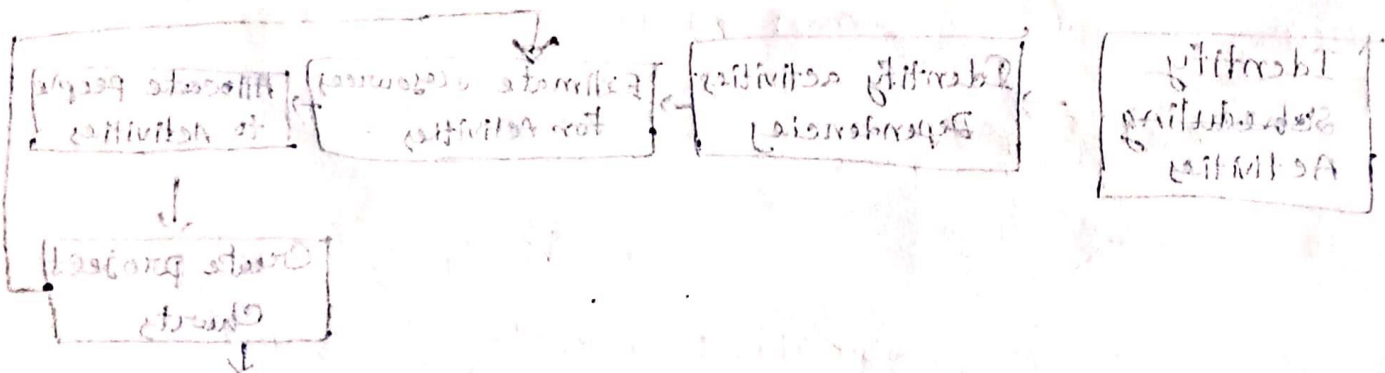 Identify
Scheduling
Activities
Identify activities
Dependencies
Estimate resources
for Activities
Allocate people
to Activities
Create project
Charts